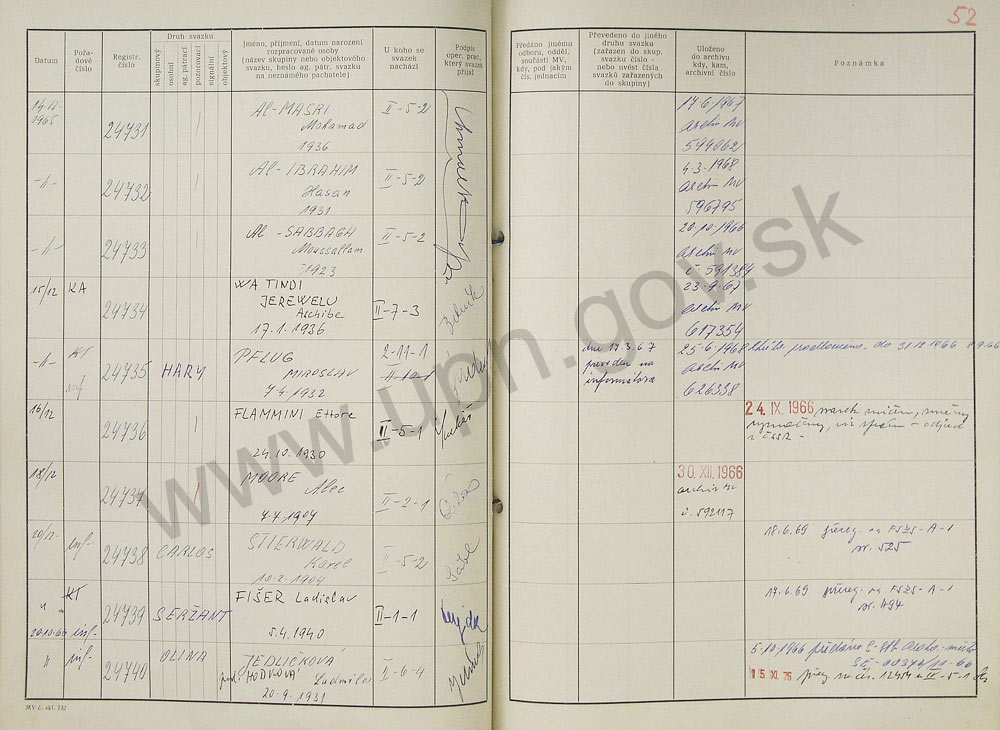 52
Datum
Pořa-
dové
číslo
Registr.
číslo
Druh svazku
skupinový
osobní
ag. pátrací
pozorovací
signální
objektový
Jméno, příjmení, datum narození
rozpracované osoby
(název skupiny nebo objektového
svazku, heslo ag. pátr. svazku
na neznámého pachatele)
U koho se
svazek
nachází
Podpis
oper. prac.,
který svazek
přijal
Předáno jinému
odboru, odděl.
součásti MV,
kdy, pod jakým
čís. jednacím
Převedeno do jiného
druhu svazku
(zařazen do skup.
svazku číslo -
nebo uvést čísla
svazků zařazených
do skupiny)
Uloženo
do archivu
kdy, kam,
archivní číslo
Poznámka
14.12.
1965
24731
Al-MASRI
Mohamad
1936
II-5-2
17.6.1967
Archiv MV
-11-
24732
Al-IBRAHIM
Hasan
1931
II-5-2
4.3.1968
Archiv MV
596795
-11-
24733
Al-SABBAGH
Moussallam
1923
II-5-2
20.10.1966
Archiv MV
č. 591384
15/12
KA
24734
WA TINDI
JEREWELU
Archibe
17.1.1936
II-7-3
23-9-67
Archiv MV
617354
-11-
KT
inf
24735
HARY
PFLUG
MIROSLAV
7.4.1932
2-11-1
II-10-1
dne 17.3.67
převeden na
informátora
25-6-1968
Archiv MV
626338
Lhůta prodloužena do 31.12.1966
16/12
24736
FLAMMINI Ettore
24.10.1930
II-5-1
24. IX. 1966
18/12
24737
MOORE
Alec
7.7.1907
II-2-1
30. XII. 1966
archiv MV
č. 592117
20/12.
inf-
24738
CARLOS
STIERWALD
Karel
10.2.1904
II-5-2
18.6.69 přereg. na FSZS-A-1
nr. 525
"
KT
20.10.66 inf-
24739
SERŽANT
FIŠER Ladislav
5.4.1940
II-1-1
17.6.69 přereg. na FSZS-A-1
nr. 494
"
inf-
24740
OLINA
JEDLIČKOVÁ
HODKOVÁ Ludmila
20.9.1931
II-6-4
5.10.1966 předáno
SE-00344/10-66
15. XI. 76 přereg. na čís. 12454 u IV-5-1
MV č. skl. 732
www.upn.gov.sk